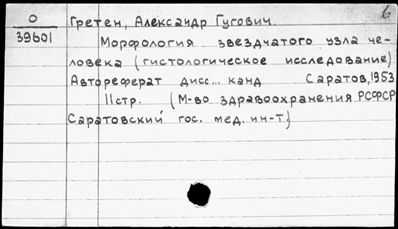 6
О
39601
Гретен, Александр Гугович.
Морфология звездчатого узла че-
ловека (гистологическое исследование)
Автореферат дисс... канд Саратов, 1953
11стр. (М-во здравоохранения РСФСР
Саратовский гос. мед. ин-т)